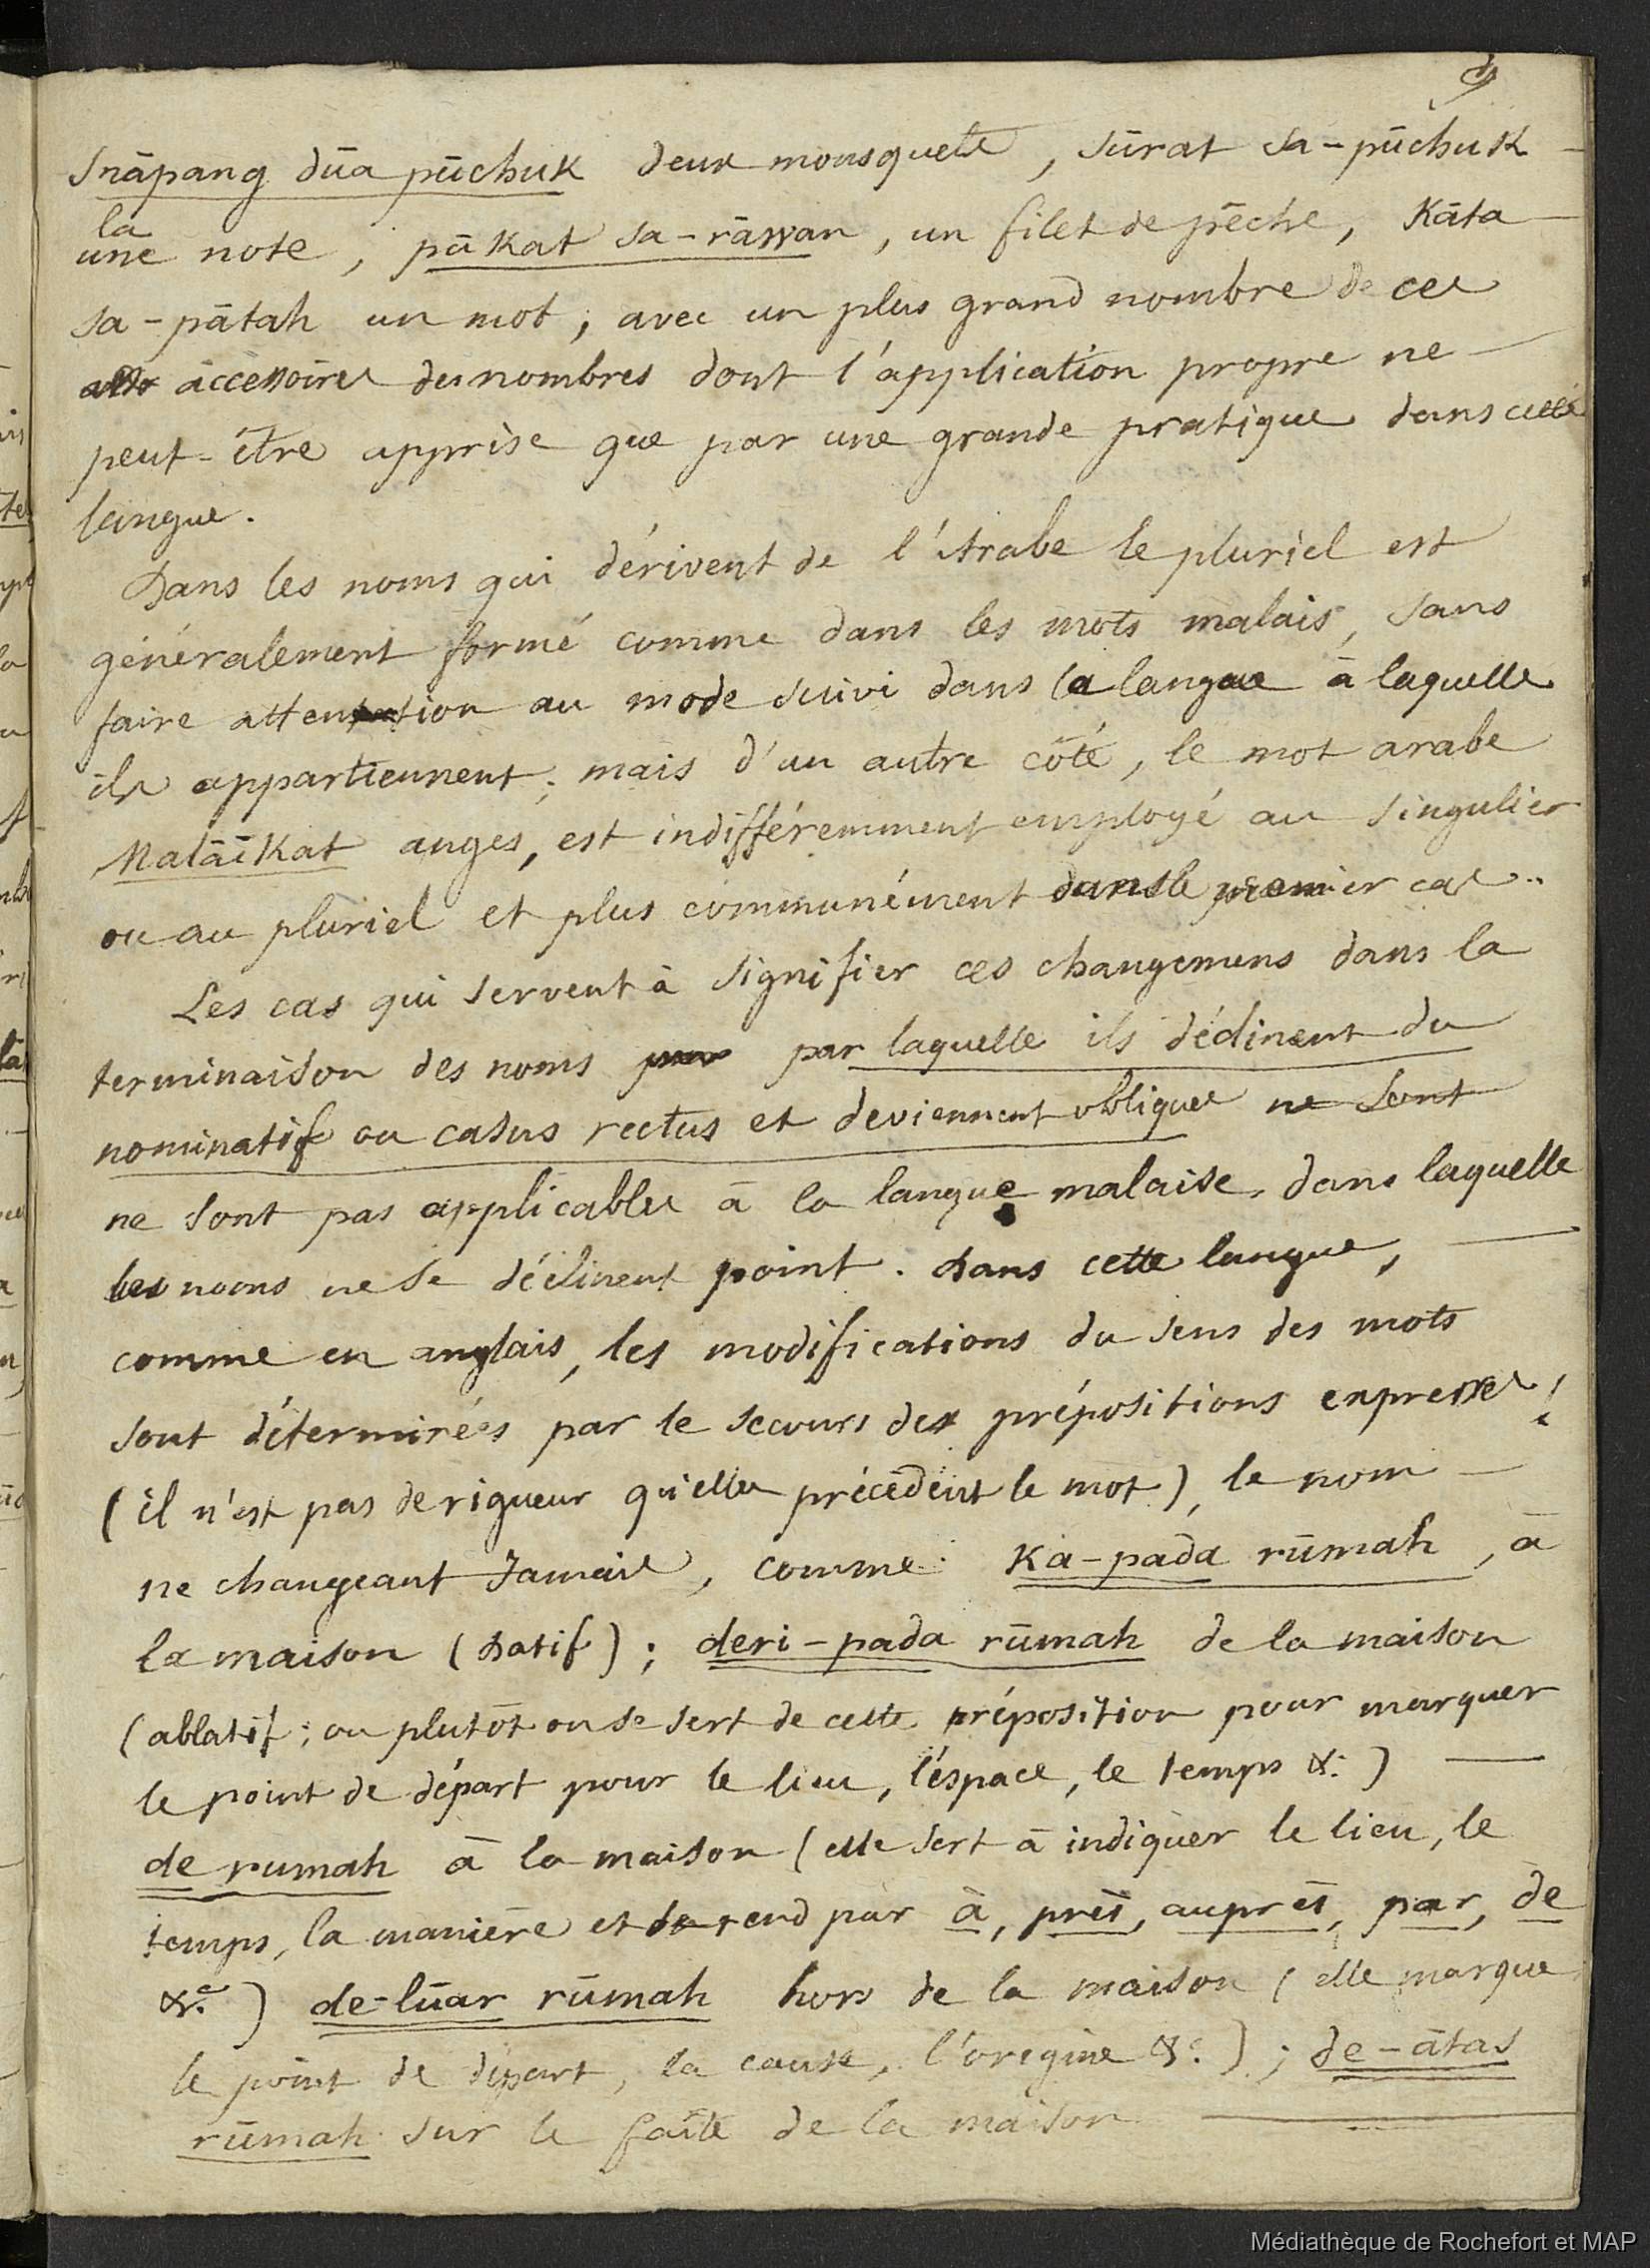 9
Snāpang dūa pūchuk deux mousquets, sūrat sa-pūchuk
la
une note, pūkat sa-rāwan, un filet de pêche, Kāta
sa-pātah un mot, avec un plus grand nombre de ces
accessoires des nombres dont l'application propre ne
peut-être apprise que par une grande pratique dans cette
langue.
Dans les noms qui dérivent de l'Arabe le pluriel est
généralement formé comme dans les mots malais, sans
faire attention au mode suivi dans la langue à laquelle
ils appartiennent; mais d'un autre côté, le mot arabe
Malāīkat anges, est indifféremment employé au singulier
ou au pluriel et plus communément dans le premier cas..
Les cas qui servent à signifier ces changemens dans la
terminaison des noms par par laquelle ils déclinent du
nominatif ou casus rectus et deviennent obliques ne sont
ne sont pas applicables à la langue malaise, dans laquelle
les noms ne se déclinent point. Dans cette langue,
comme en anglais, les modifications du sens des mots
sont déterminées par le secours des prépositions expresses;
(il n'est pas de rigueur qu'elles précèdent le mot), le nom
ne changeant Jamais, comme: Ka-pada rūmah, à
la maison (Datif); deri-pada rūmah de la maison
(ablatif; ou plutôt on se sert de cette préposition pour marquer
le point de départ pour le lieu, l'éspace, le temps &.)
de rumah à la maison (elle sert à indiquer le lieu, le
temps, la manière et se rend par à, près, auprès, par, de
&.a) de-lūar rūmah hors de la maison (elle marque
le point de départ, la cause, l'origine &c.); de-ātas
rūmah sur le faîte de la maison
Médiathèque de Rochefort et MAP